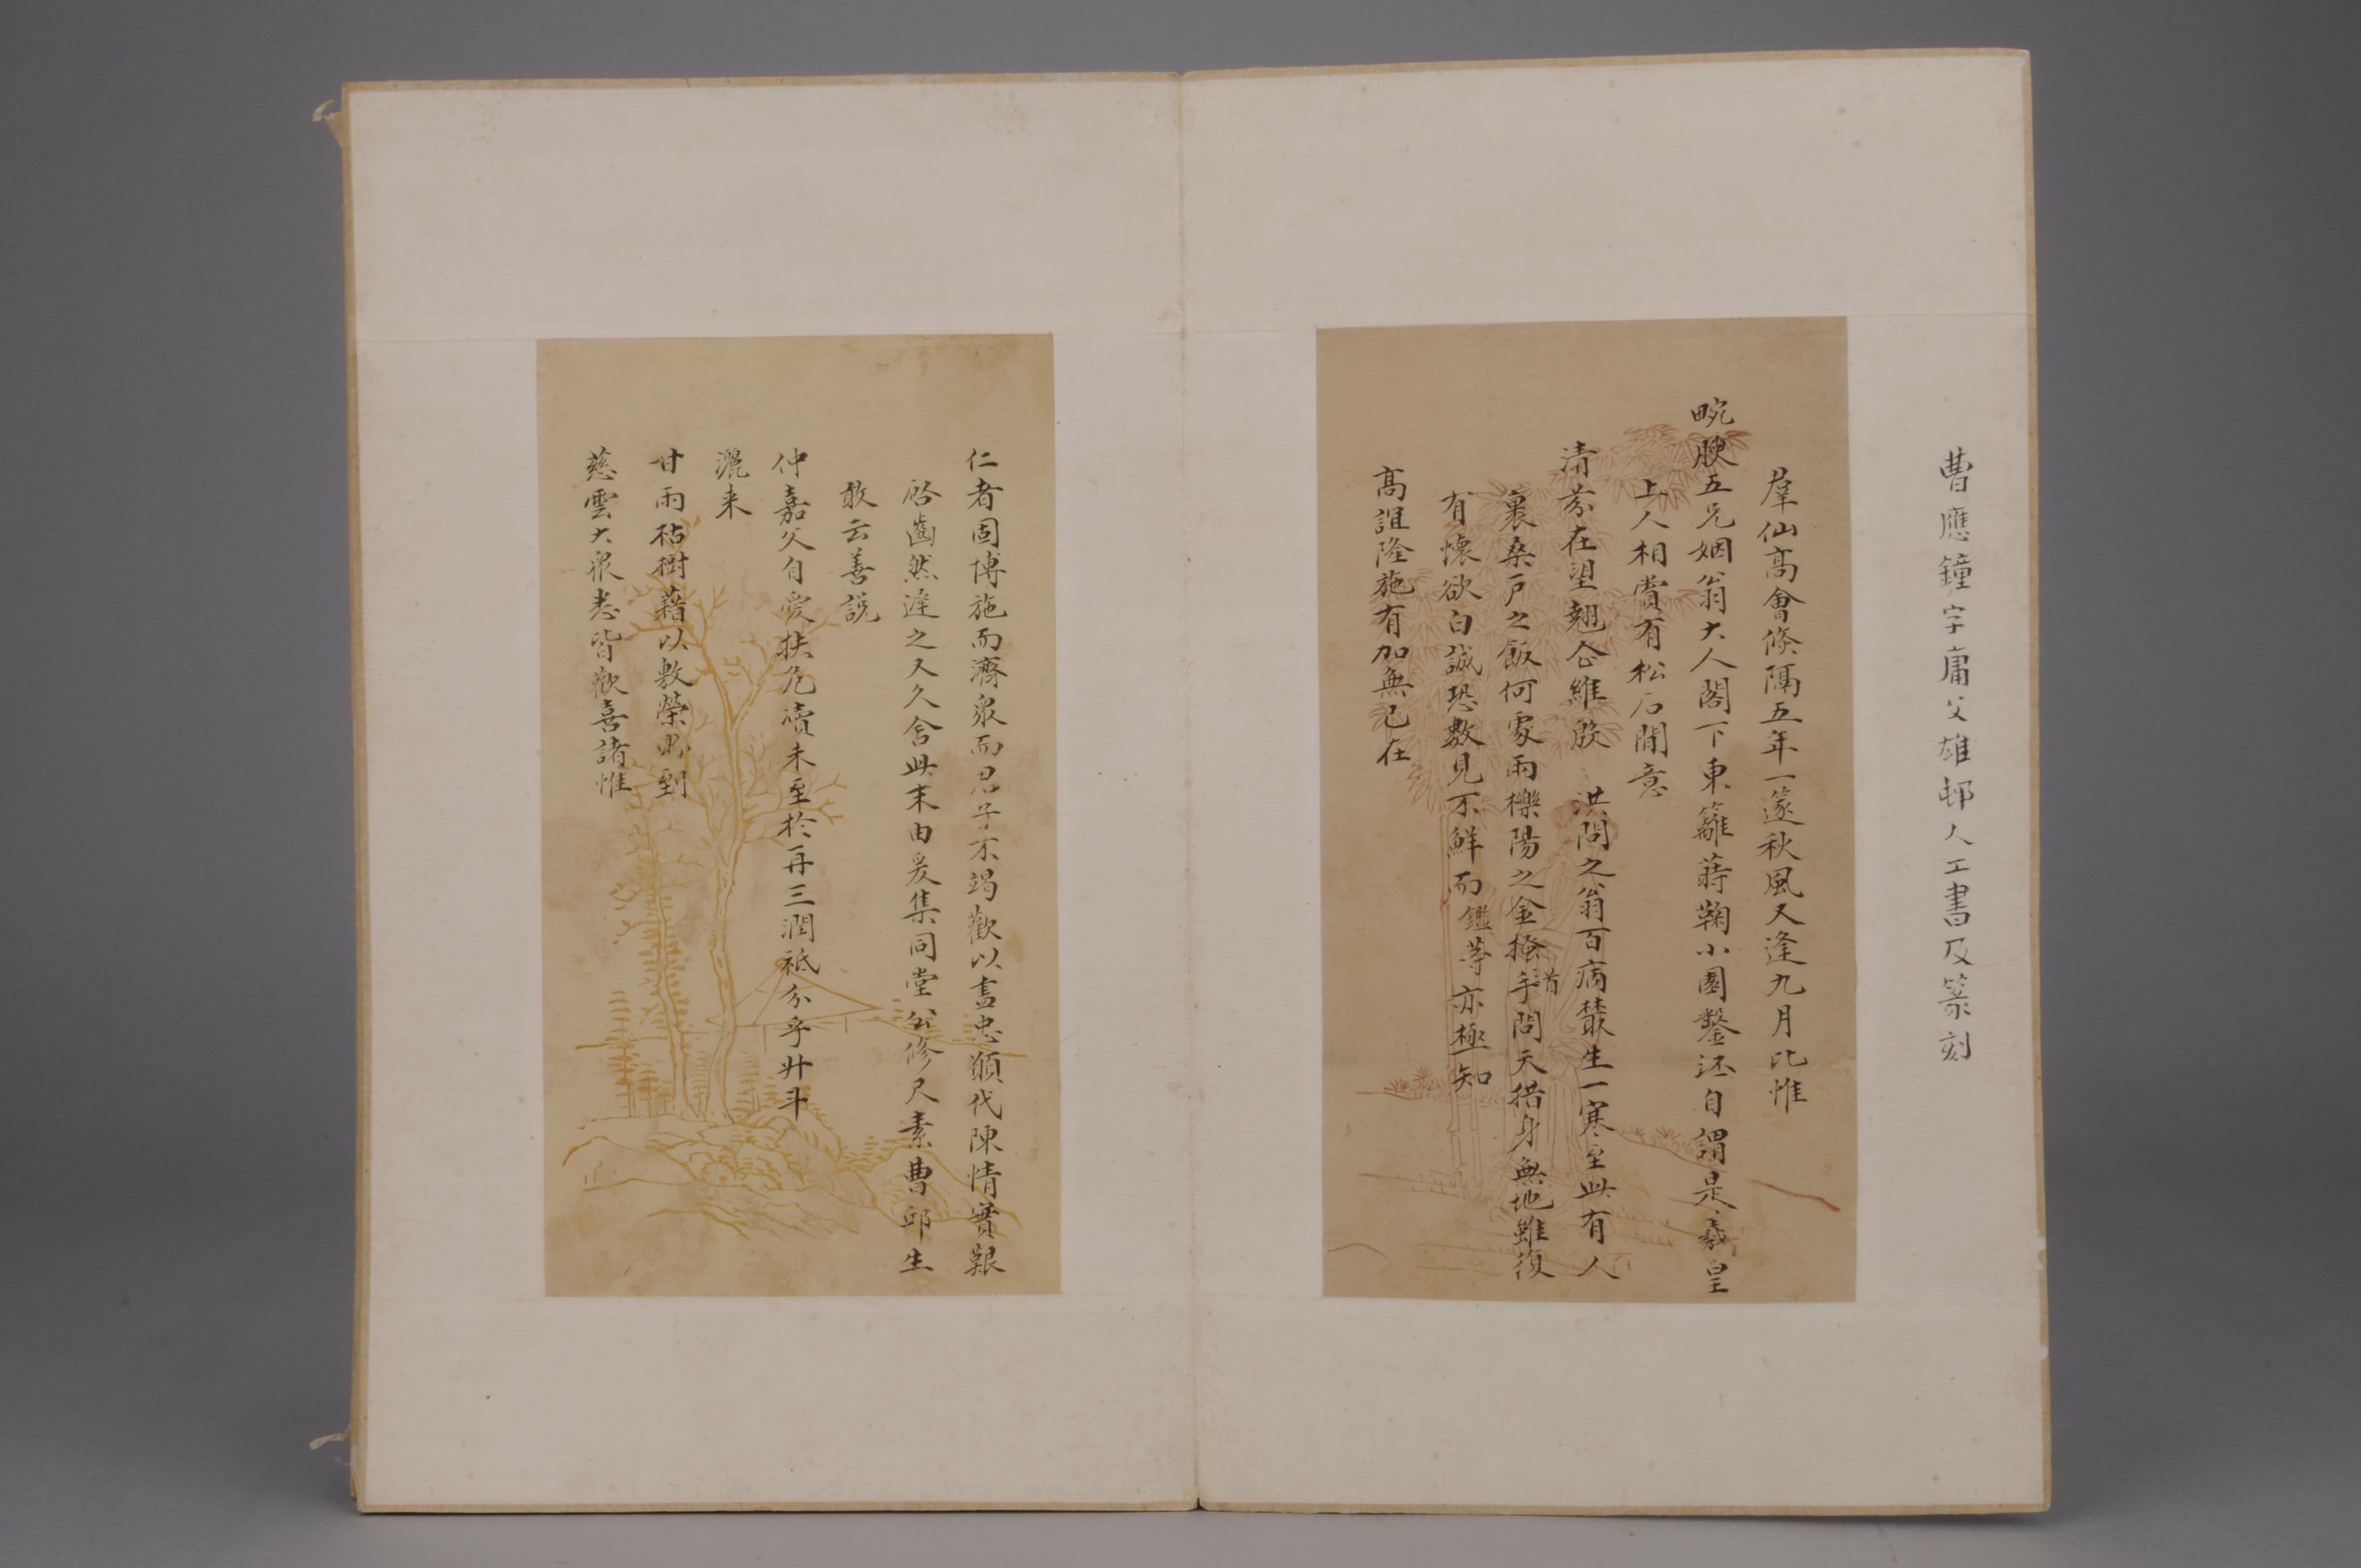 曹應鐘字庸父雄邨人工書及篆刻
羣仙高會倏隔五年一篴秋風又逢九月比惟
畹腴五兄姻翁大人閣下東籬蒔鞠小園鑿沼自謂是羲皇
上人相賞有松石閒意
清芬在望翹企維殷 洪問之翁百病叢生一寒至此有人
裹桑戶之飯何處雨櫟陽之金搔首手問天措身無地雖復
有懷欲白誠恐數見不鮮而鑑等亦極知
高誼隆施有加無已在
仁者固博施而濟衆而君子不竭歡以盡忠願代陳情實艱
啓齒然遲之又久舍此末由爰集同堂公修尺素曹邱生
敢云善說
仲嘉父自愛扶危瀆未至於再三潤祗分乎升斗
灑来
甘雨枯樹藉以敷榮到
慈雲大衆悉皆歡喜諸惟